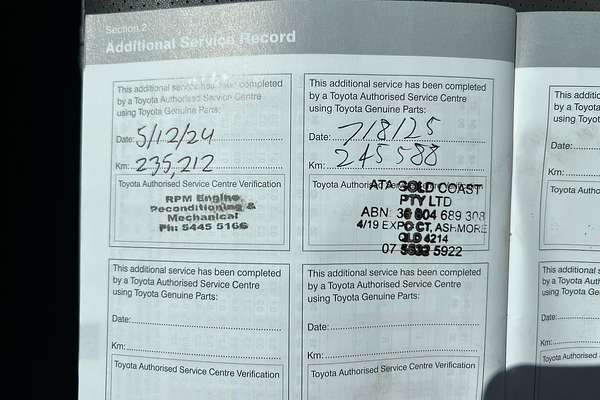 Section 2
Additional Service Record
This additional service has been completed
by a Toyota Authorised Service Centre
using Toyota Genuine Parts:
Date: 5/12/24
Km: 235,212
Toyota Authorised Service Centre Verification
RPM Engine
Reconditioning &
Mechanical
Ph: 5445 5166
This additional service has been completed
by a Toyota Authorised Service Centre
using Toyota Genuine Parts:
Date: 7/8/25
Km: 245 588
Toyota Authorised
ATA GOLD COAST
PTY LTD
ABN: 36 804 689 308
4/19 EXPO CT, ASHMORE
QLD 4214
07 5922
This additional service has been completed
by a Toyota Authorised Service Centre
using Toyota Genuine Parts:
Date:
Km:
Toyota Authorised Service Centre Verification
This additional service has been completed
by a Toyota Authorised Service Centre
using Toyota Genuine Parts:
Date:
Km:
Toyota Authorised Service Centre Verification
This additio
by a Toyota
using Toyot
Date:
Km:
Toyota Auth
This additional
by a Toyota Au
using Toyota Ge
Date:
Km:
Toyota Authorised